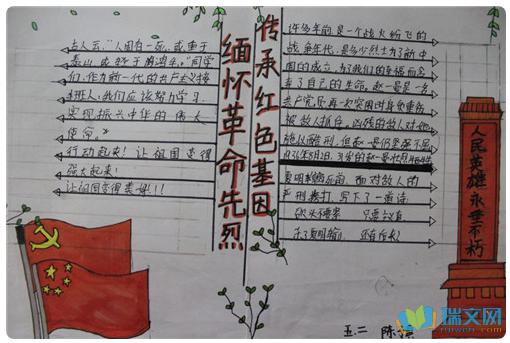 缅怀革命先烈
传承红色基因
古人云,"人固有一死,或重于
泰山,或轻于鸿毛,"同学
们,作为新一代的共产主义接
班人,我们应该努力学习,
实现振兴中华的伟大
使命。
行动起来!让祖国变得
强大起来!
让祖国变得美好!!!
许多年前,是一个战火纷飞的
战争年代,是多少烈士为了新中
国的成立,为了我们的幸福而
了自己的生命,赵一曼是一名
共产党员
被敌人抓住,凶残的敌人对他
施以酷刑,但赵一曼仍坚强不屈
面对敌人的
严刑拷打,写下了一首诗
砍头不要紧 只要主义真
杀了夏明翰 还有后来人
人民英雄永垂不朽
五.二 陈
瑞文网
ruiwen.com